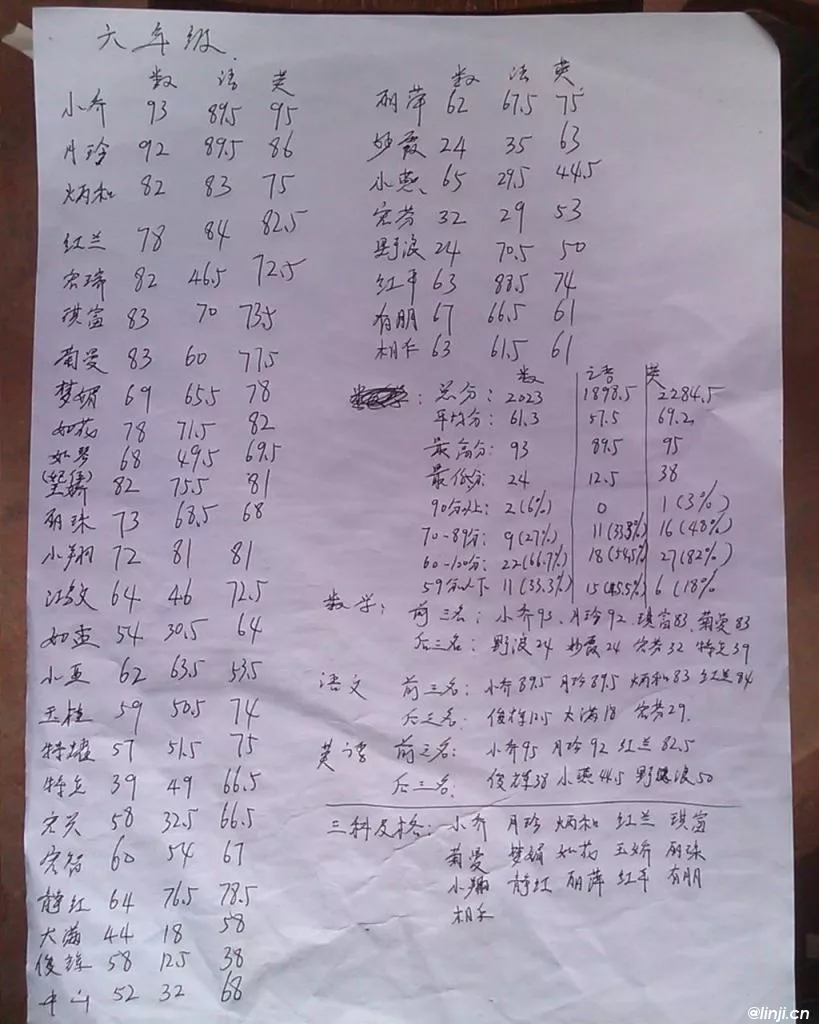 六年级
数 语 英
小乔 93 89.5 95
月玲 92 89.5 86
炳和 82 83 75
红兰 78 84 82.5
宏瑞 82 46.5 72.5
琪富 83 70 73.5
菊曼 83 60 77.5
梦娟 69 65.5 78
如花 78 71.5 82
如琴 68 49.5 69.5
玉娇 82 75.5 81
丽珠 73 68.5 68
小翔 72 81 81
鸿文 64 46 72.5
如孟 54 30.5 64
小亚 62 63.5 53.5
玉桂 59 50.5 74
特耀 57 51.5 75
特立 39 49 66.5
宏兴 58 32.5 66.5
宏智 60 54 67
静红 64 76.5 78.5
大满 44 18 58
俊辉 58 12.5 38
中山 52 32 68
数 语 英
丽萍 62 67.5 75
妙霞 24 35 63
小燕 65 29.5 44.5
宏芳 32 29 53
野浪 24 70.5 50
红平 63 88.5 74
有朋 67 66.5 61
相禾 63 61.5 61
数 语 英
总分: 2023 1898.5 2284.5
平均分: 61.3 57.5 69.2
最高分: 93 89.5 95
最低分: 24 12.5 38
90分以上: 2(6%) 0 1(3%)
70-89分: 9(27%) 11(33.3%) 16(48%)
60-100分: 22(66.7%) 18(54.5%) 27(82%)
59分以下 11(33.3%) 15(45.5%) 6(18%
数学: 前三名: 小乔93、月玲92、琪富83、菊曼83
后三名: 野浪24 妙霞24 宏芳32 特立39
语文 前三名: 小乔89.5 月玲89.5 炳和83 红兰84
后三名: 俊辉12.5 大满18 宏芳29.
英语 前三名: 小乔95 月玲92 红兰82.5
后三名: 俊辉38 小燕44.5 野浪50
三科及格: 小乔 月玲 炳和 红兰 琪富
菊曼 梦娟 如花 玉娇 丽珠
小翔 静红 丽萍 红平 有朋
相禾
@linji.cn